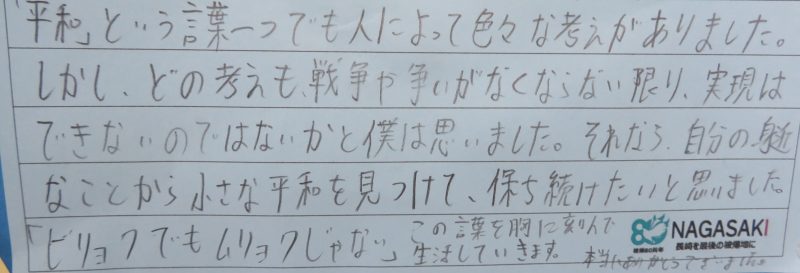 「平和」という言葉一つでも人によって色々な考えがありました。
しかし、どの考えも、戦争や争いがなくならない限り、実現は
できないのではないかと僕は思いました。それなら、自分の身近
なことから小さな平和を見つけて、保ち続けたいと思いました。
「ビリョクでもムリョクじゃない」
この言葉を胸に刻んで
生活していきます。
80
被爆80周年
NAGASAKI
長崎を最後の被爆地に
本当にありがとうございました。